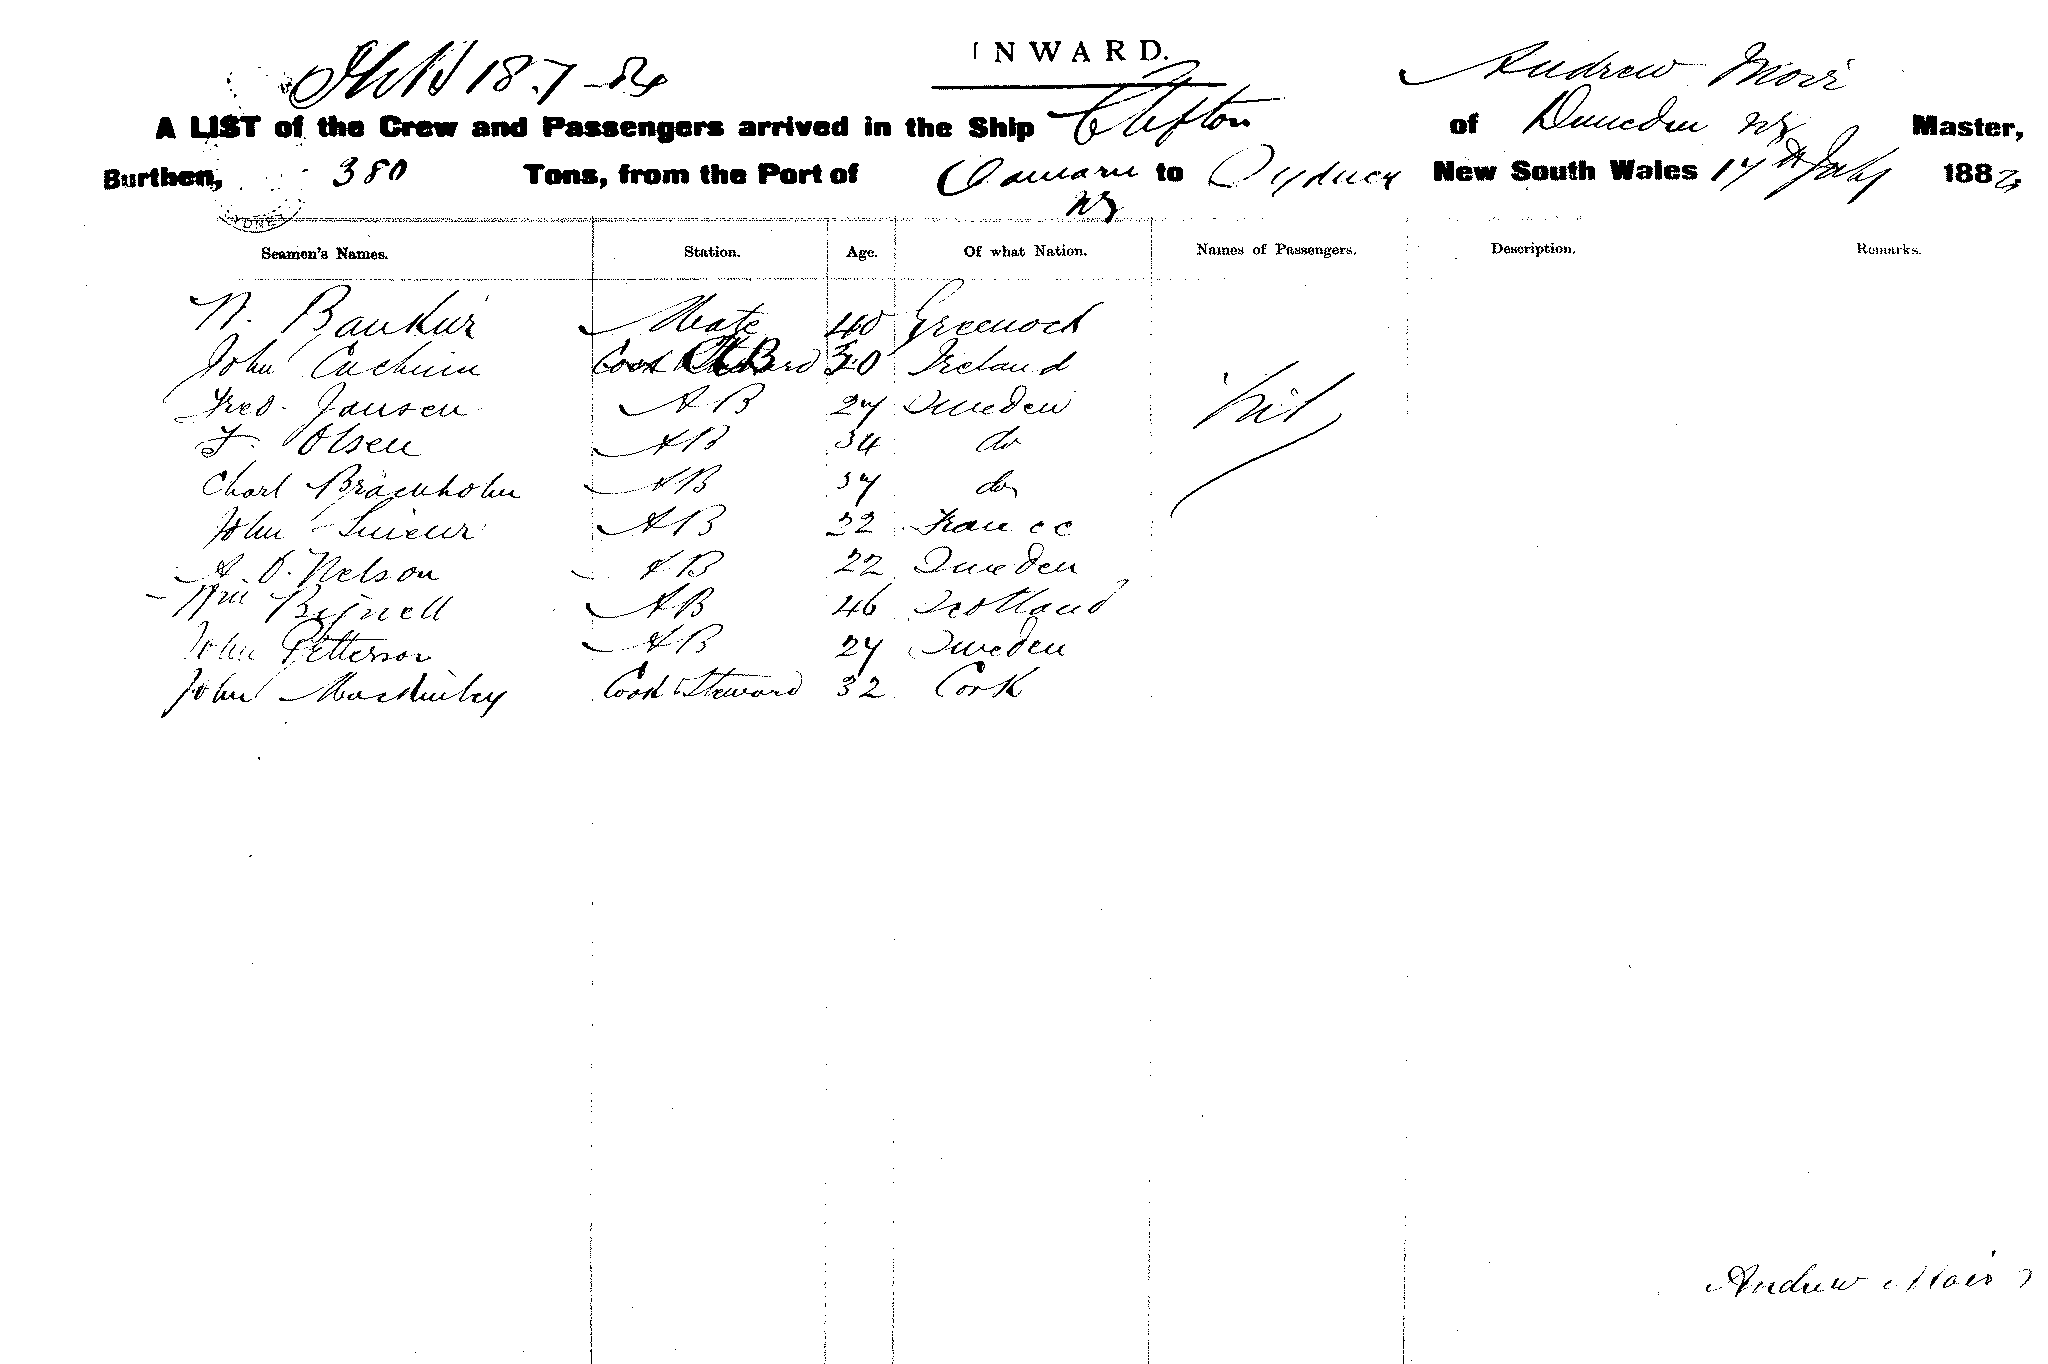 INWARD.
18.7 Andrew Moir
A LIST of the Crew and Passengers arrived in the Ship Clifton of Dunedin NZ Master,
Burthen, 380 Tons, from the Port of Oamaru NZ to Sydney New South Wales 17th July 188
Seamen's Names. Station. Age. Of what Nation. Names of Passengers. Description. Remarks.
N. Mate 40 Greenock
John Cook 30 Ireland
Fred. Jansen AB 27 Sweden Nil
F. Olsen AB 34 do
Charl AB 37 do
John AB 22 France
A. O. Nelson AB 22 Sweden
Wm Bignell AB 46 Scotland
John Petterson AB 27 Sweden
John Mackinley Cook Steward 32 Cork
Andrew Moir